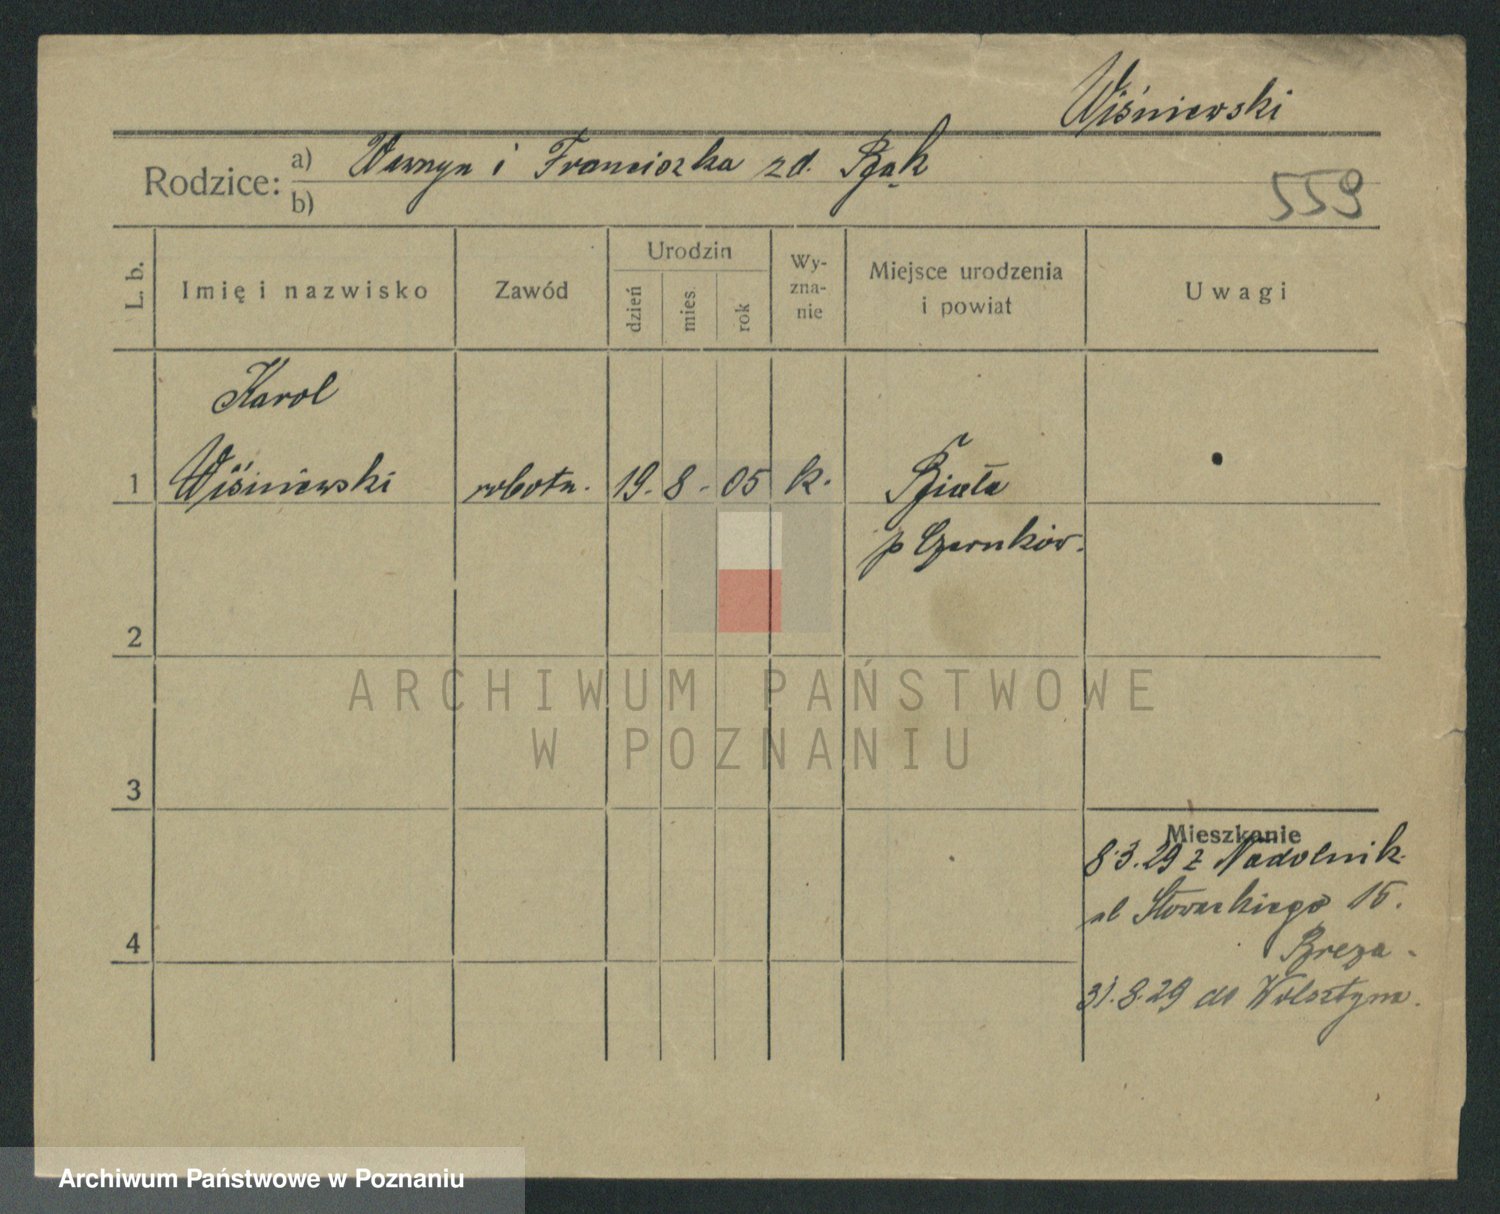 Wiśniewski
Rodzice: a) Wawrzyn i Franciszka zd. Bąk
b)
559
L. b.
Imię i nazwisko
Zawód
Urodzin
dzień
mies
rok
Wy-
zna-
nie
Miejsce urodzenia
i powiat
Uwagi
Karol
1 Wiśniewski robotn. 19. 8. 05 k. Biała
p Czarnków.
2
ARCHIWUM PAŃSTWOWE
W POZNANIU
3
Mieszkanie
8.3.29 z Nadolnik
ul Słowackiego 15.
Bręza
4
31.8.29 do Wolsztyna.
Archiwum Państwowe w Poznaniu